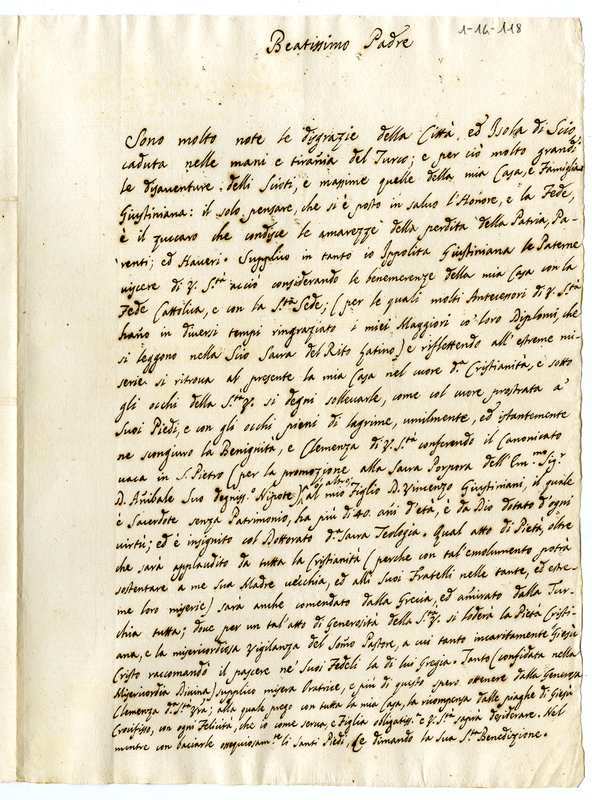 1-16-118
Beatissimo Padre
Sono molto note le disgrazie della Città, ed Isola di Scio,
caduta nelle mani e tirañia del Turco; e per ciò molto grandi
le disaventure delli Scioti, e massime quelle della mia Casa, e Famiglia
Giustiniana: il solo pensare, che si è posto in salvo l'Honore, e la Fede,
è il zuccaro che condisce le amarezze della perdita della Patria, Pa-
renti; ed Haveri. Supplico in tanto io Ippolita Giustiniana le Paterne
viscere di V. Stà acciò considerando le benemerenze della mia Casa con la
Fede Cattolica, e con la S.ta Sede; (per le quali molti Antecessori di V. S.tà
hañо in diversi tempi ringraziato i miei Maggiori co' loro Diplomi, che
si leggono nella Scio Sacra del Rito Latino) e riflettendo all'estreme mi-
serie si ritrova al presente la mia Casa nel cuore d.a Cristianità, e sotto
gli occhi della S.tà V. si degni sollevarle, come col cuore prostrata a'
Suoi Piedi, e con gli occhi pieni di lagrime, umilmente, ed istantemente
ne scongiuro la Benignità, e Clemenza di V. S.tà conferendo il Canonicato
vaca in S. Pietro (per la promozione alla Sacra Porpora dell'Em.mo Sig.r
D. Añibale Suo degniss.o Nipote) al mio Figlio D. Vincenzo Giustiniani, il quale
è Sacerdote senza Patrimonio, ha più di 40. añi d'età, è da Dio dotato d'ogni
virtù; ed è insignito col Dottorato d.a Sacra Teologia. Qual atto di Pietà, oltre
che sarà applaudito da tutta la Cristianità (perche con tal'emolumento potrà
sostentare a me sua Madre vecchia, ed alli Suoi Fratelli nelle tante, ed estre-
me loro miserie) sarà anche comendato dalla Grecia, ed amirato dalla Tur-
chia tutta; dove per un tal'atto di Generosità della S.tà V. si loderà la Pietà Cristi-
ana, e la misericordiosa Vigilanza del Som̃o Pastore, a cui tanto incaritamente Giesù
Cristo raccomandò il pascere ne' Suoi Fedeli la di lui Gregia. Tanto (confidata nella
Misericordia Divina) supplico misera Oratrice, e più di questo spero ottenere dalla Generosa
Clemenza d.a S.tà Vra; alla quale prego con tutta la mia Casa, la ricompensa dalle piaghe di Giesù
Crocifisso, con ogni Felicità, che io come serva, e Figlia obligatiss.a e V. S.tà saprà desiderare. Nel
mentre con baciarle ossequiosam.te li Santi Piedi, le dimando la Sua S.ta Benedizione.